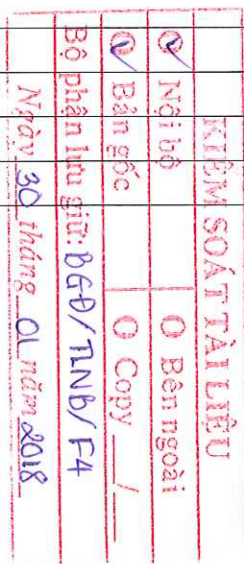 KIỂM SOÁT TÀI LIỆU
O Nội bộ O Bên ngoài
O Bản gốc O Copy /
Bộ phận lưu giữ: BGĐ/TLNB/F4
Ngày 30 tháng 01 năm 2018